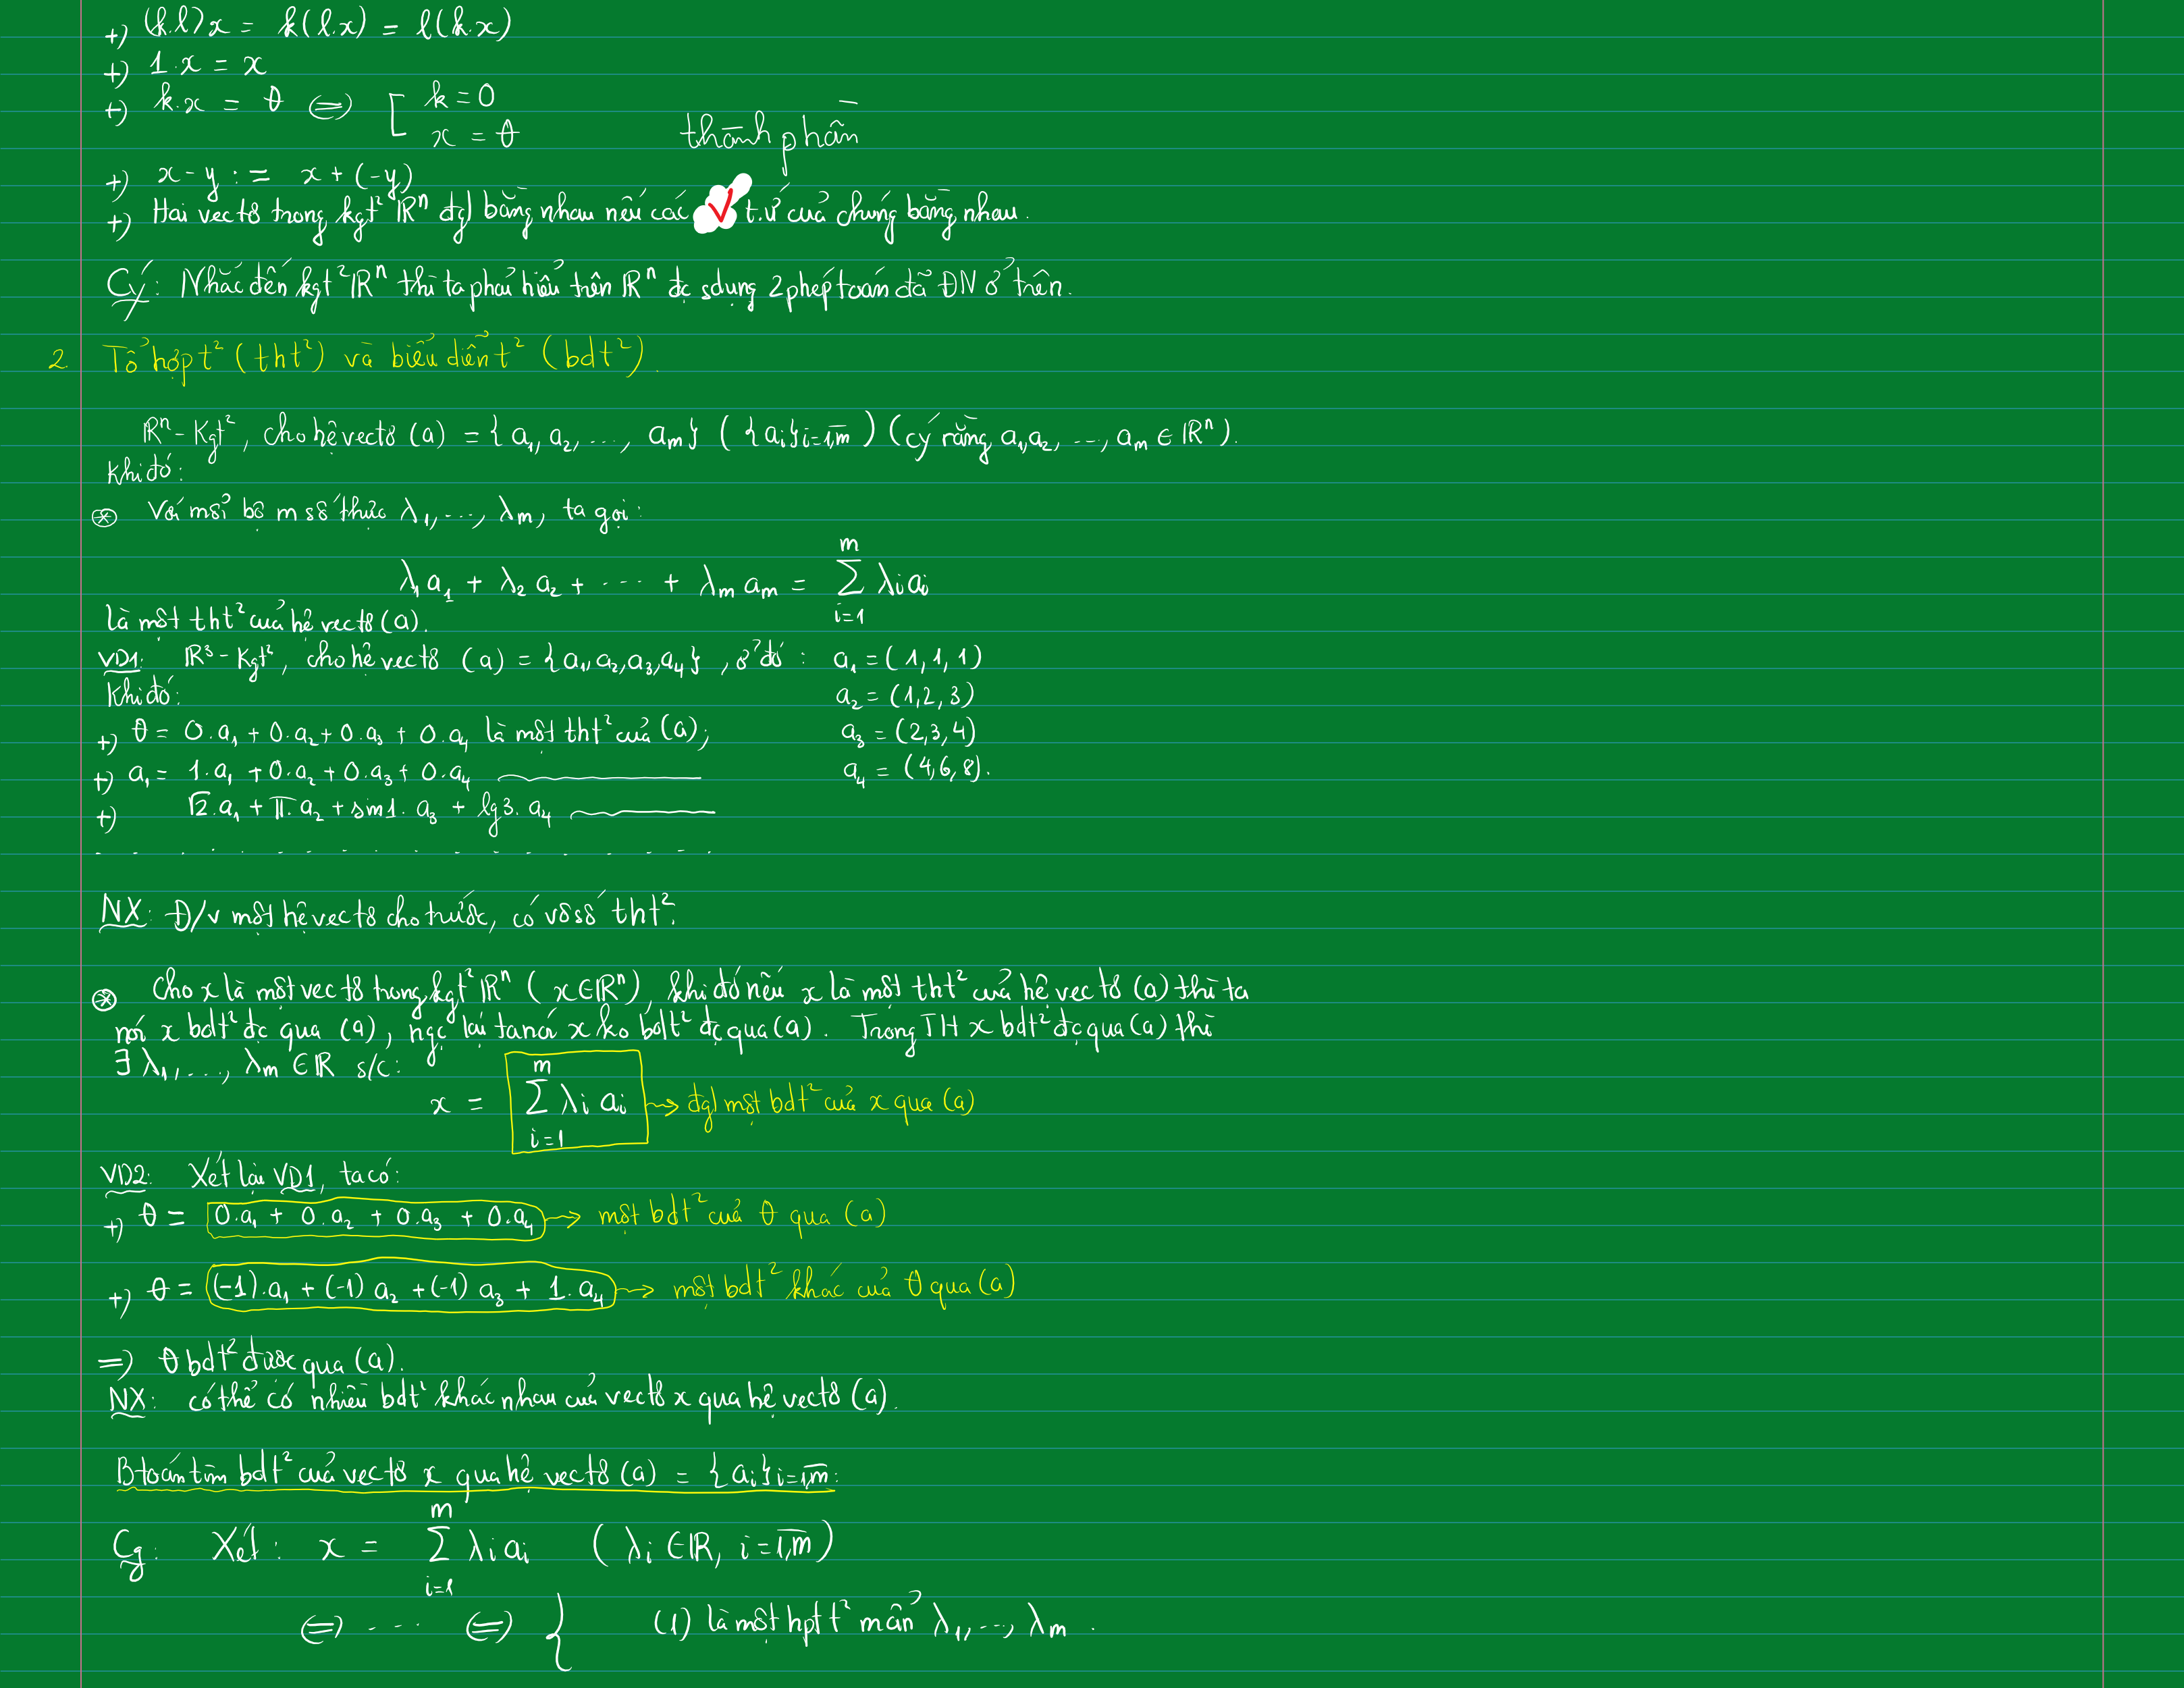 +) (k.l)x = k(l.x) = l(k.x)
+) 1.x = x
+) k.x = θ ⇔ [ k = 0
x = θ
thành phần
+) x - y := x + (-y)
+) Hai vectơ trong kgt² ℝⁿ đgl bằng nhau nếu các √ t.ứ của chúng bằng nhau.
Cý: Nhắc đến kgt² ℝⁿ thì ta phải hiểu trên ℝⁿ đc sdụng 2 phép toán đã ĐN ở trên.
2. Tổ hợp t² (tht²) và biểu diễn t² (bdt²).
ℝⁿ - Kgt², cho hệ vectơ (a) = {a₁, a₂, ..., aₘ} ({aᵢ}i=1,m̅) (cý rằng a₁, a₂, ..., aₘ ∈ ℝⁿ).
Khi đó:
⊛ Với mỗi bộ m số thực λ₁, ..., λₘ, ta gọi:
λ₁a₁ + λ₂a₂ + ... + λₘaₘ = ∑ᵢ₌₁ᵐ λᵢaᵢ
là một tht² của hệ vectơ (a).
VD1: ℝ³ - Kgt², cho hệ vectơ (a) = {a₁, a₂, a₃, a₄}, ở đó: a₁ = (1, 1, 1)
Khi đó: a₂ = (1, 2, 3)
+) θ = 0.a₁ + 0.a₂ + 0.a₃ + 0.a₄ là một tht² của (a); a₃ = (2, 3, 4)
+) a₁ = 1.a₁ + 0.a₂ + 0.a₃ + 0.a₄ ——— a₄ = (4, 6, 8).
+) √2.a₁ + π.a₂ + sin1.a₃ + lg3.a₄ ———
. . . . . . . . . . . .
NX: Đ/v một hệ vectơ cho trước, có vô số tht².
⊛ Cho x là một vectơ trong kgt² ℝⁿ (x∈ℝⁿ), khi đó nếu x là một tht² của hệ vectơ (a) thì ta
nói x bdt² đc qua (a), ngc lại ta nói x ko bdt² đc qua (a). Trong TH x bdt² đc qua (a) thì
∃ λ₁, ..., λₘ ∈ ℝ s/c:
x = ∑ᵢ₌₁ᵐ λᵢaᵢ → đgl một bdt² của x qua (a)
VD2: Xét lại VD1, ta có:
+) θ = 0.a₁ + 0.a₂ + 0.a₃ + 0.a₄ → một bdt² của θ qua (a)
+) θ = (-1).a₁ + (-1)a₂ + (-1)a₃ + 1.a₄ → một bdt² khác của θ qua (a)
⇒ θ bdt² được qua (a).
NX: có thể có nhiều bdt² khác nhau của vectơ x qua hệ vectơ (a).
Btoán tìm bdt² của vectơ x qua hệ vectơ (a) = {aᵢ}i=1,m̅:
Cg: Xét: x = ∑ᵢ₌₁ᵐ λᵢaᵢ (λᵢ ∈ ℝ, i=1,m̅)
⇔ ... ⇔ { (1) là một hptt² m ẩn λ₁, ..., λₘ.